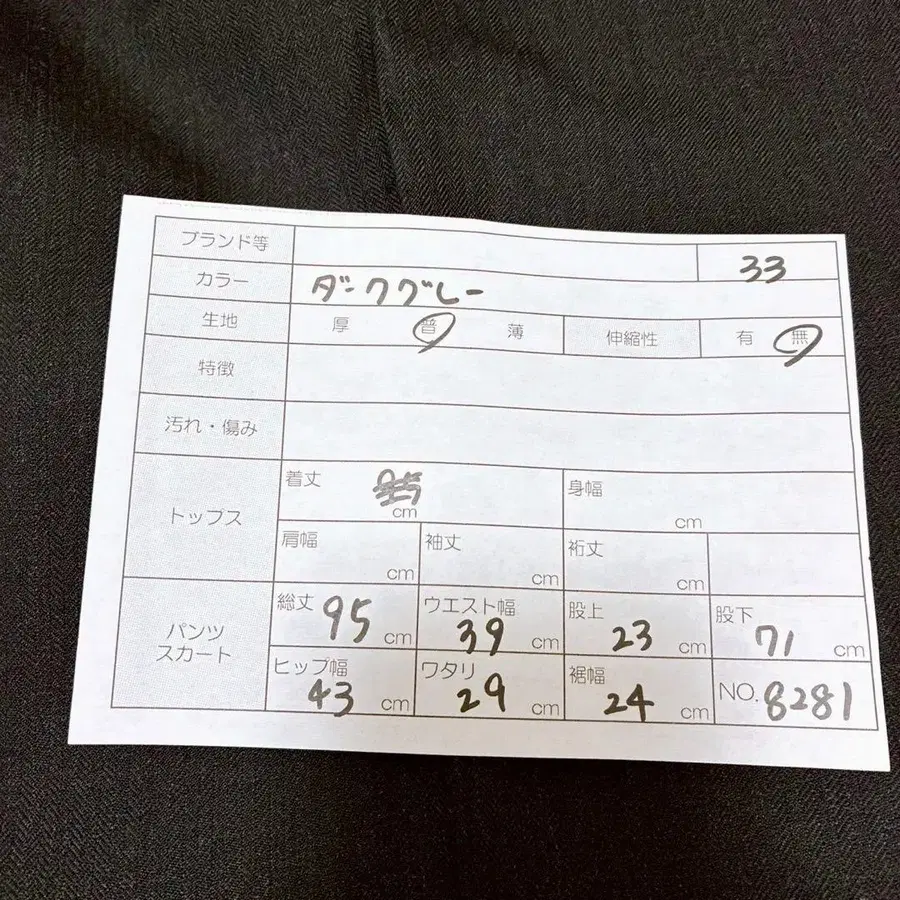 ブランド等 33
カラー ダークグレー
生地 厚 普 薄 伸縮性 有 無
特徴
汚れ・傷み
トップス
着丈 cm 身幅 cm
肩幅 cm 袖丈 cm 裄丈 cm
パンツ
スカート
総丈 95 cm ウエスト幅 39 cm 股上 23 cm 股下 71 cm
ヒップ幅 43 cm ワタリ 29 cm 裾幅 24 cm NO. 8281